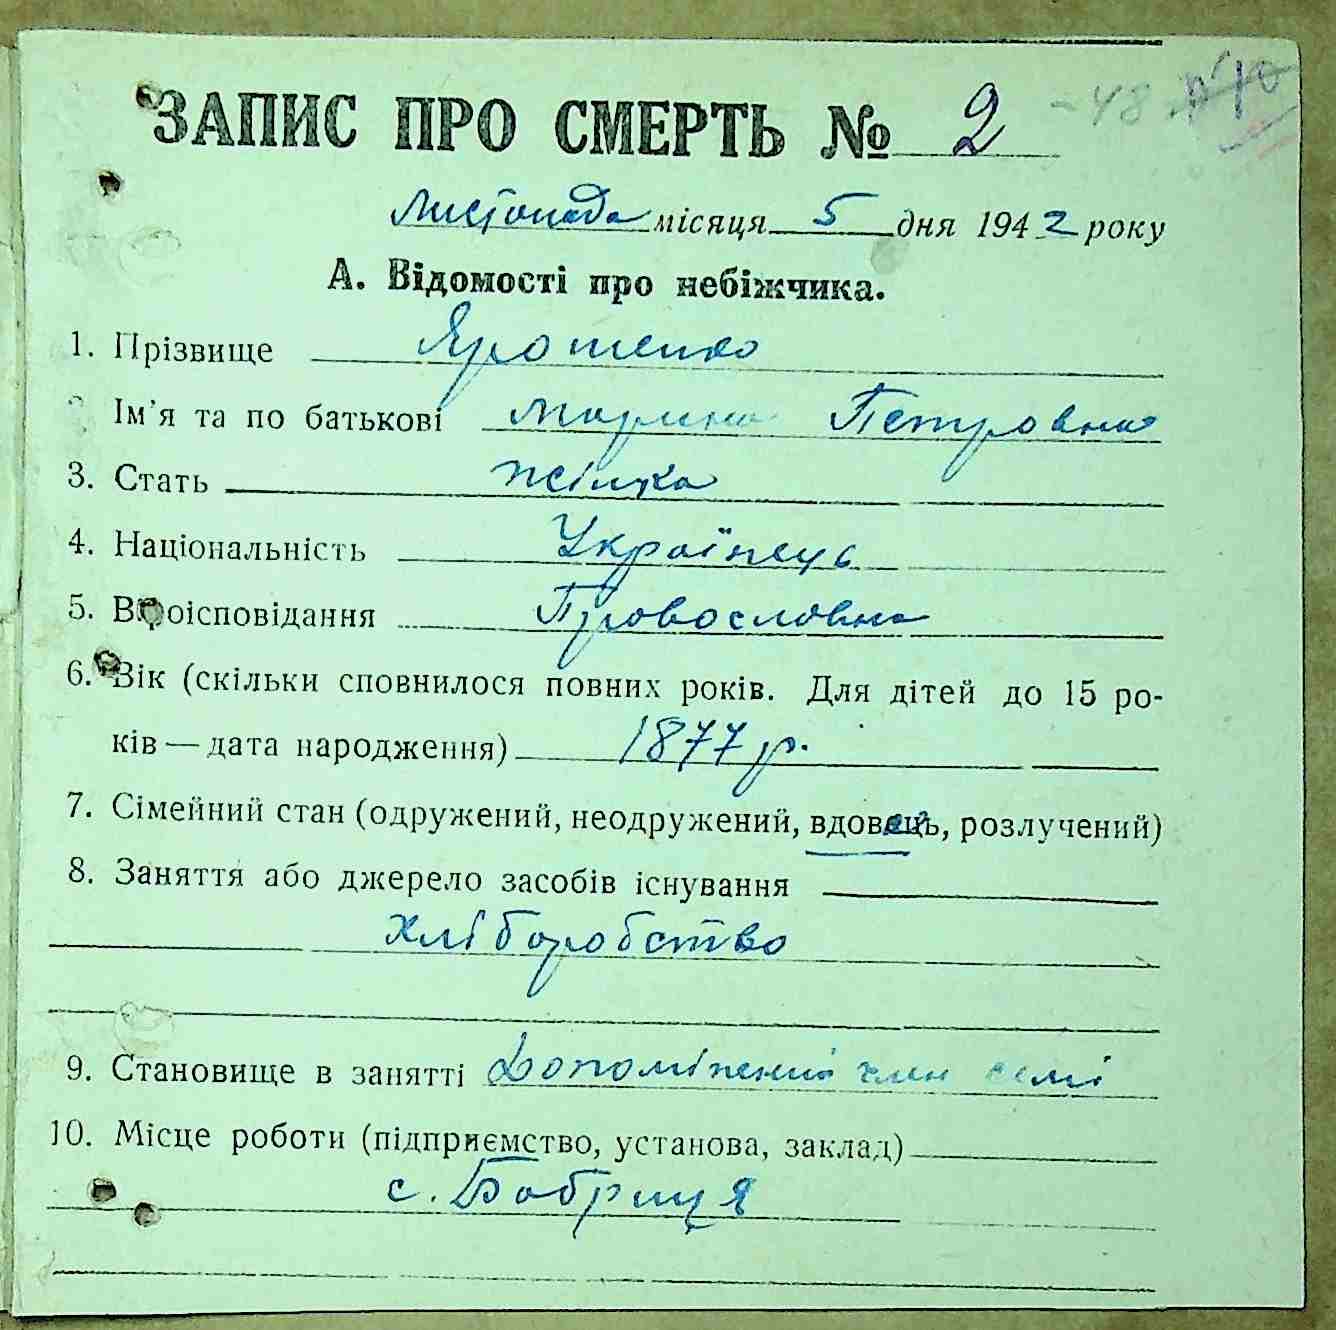 ЗАПИС ПРО СМЕРТЬ № 2 -48 №10
листопада місяця 5 дня 1942 року
А. Відомості про небіжчика.
1. Прізвище Ярошенко
Ім’я та по батькові Марина Петровна
3. Стать жінка
4. Національність Українець
5. Віроісповідання Православна
6. Вік (скільки сповнилося повних років. Для дітей до 15 ро-
ків — дата народження) 1877 р.
7. Сімейний стан (одружений, неодружений, вдовець, розлучений)
8. Заняття або джерело засобів існування
хліборобство
9. Становище в занятті Допоміжний член семі
10. Місце роботи (підприємство, установа, заклад)
с. Бобриця